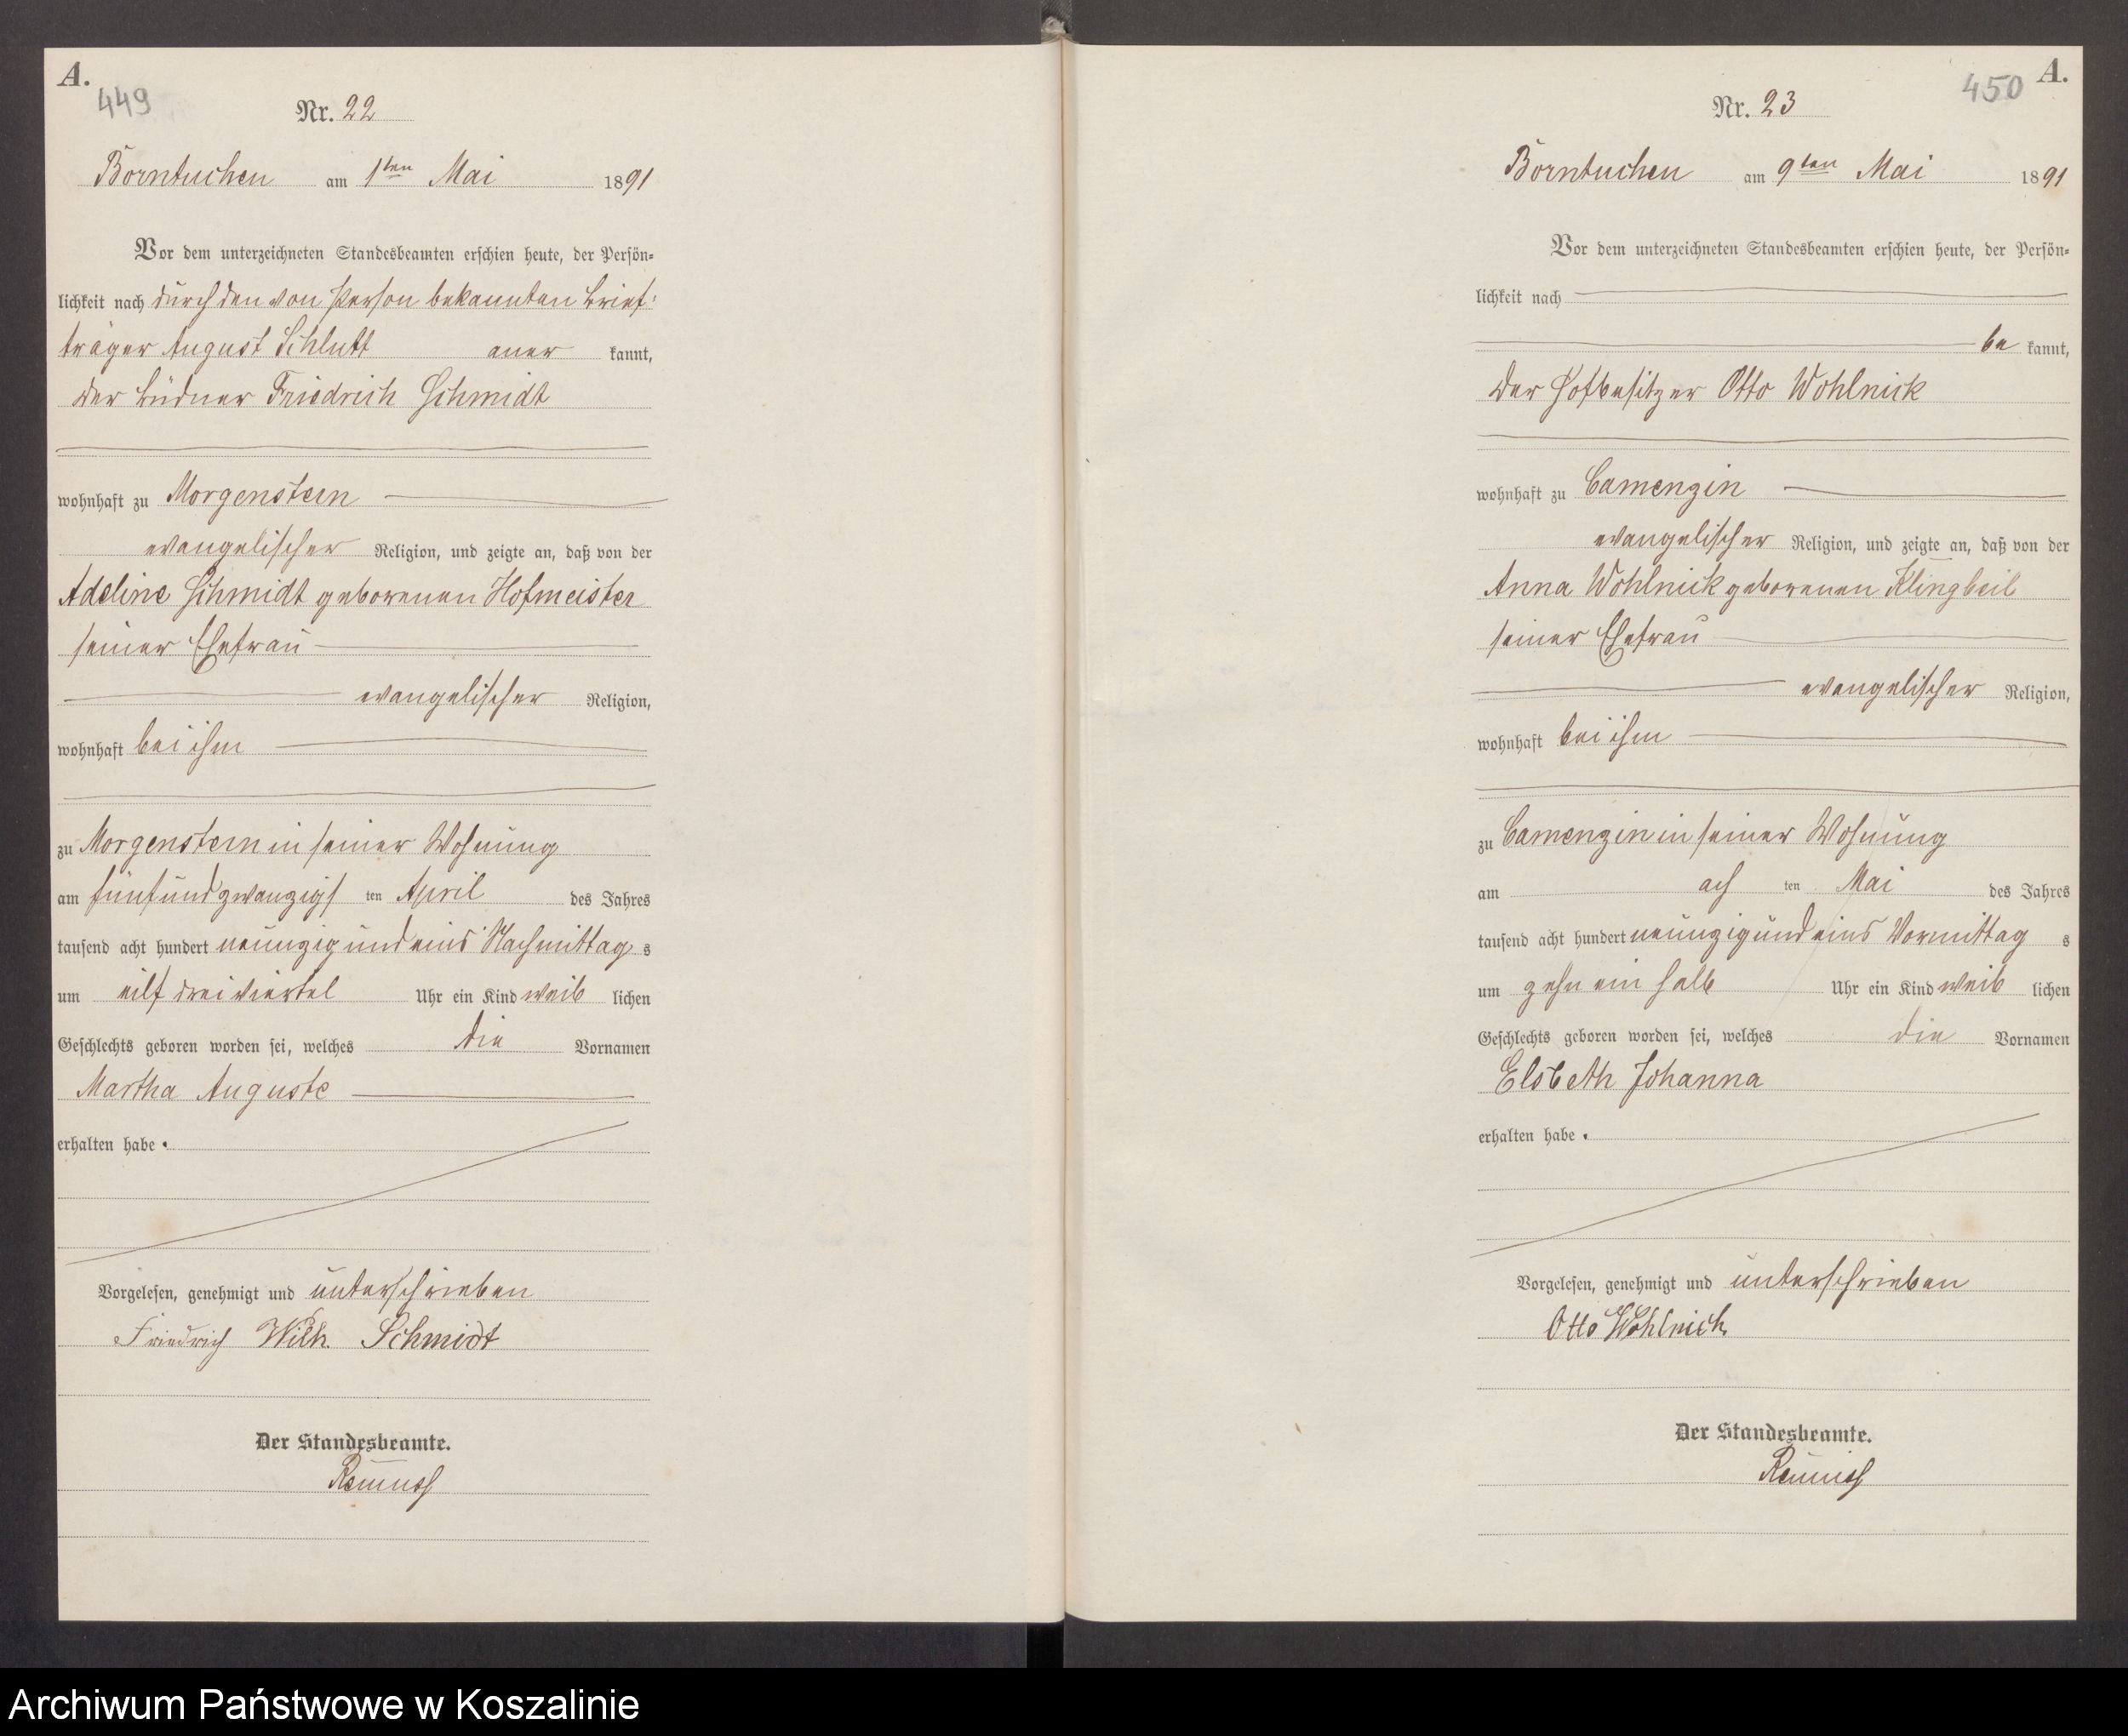 A.
449
Nr. 22
Borntuchen am 1ten Mai 1891
Vor dem unterzeichneten Standesbeamten erschien heute, der Persön-
lichkeit nach durch den von Person bekannten Brief-
träger August Schlutt aner kannt,
der Büdner Friedrich Schmidt
wohnhaft zu Morgenstern
evangelischer Religion, und zeigte an, daß von der
Adeline Schmidt geborenen Hofmeister
seiner Ehefrau
evangelischer Religion,
wohnhaft bei ihm
zu Morgenstern in seiner Wohnung
am fünfundzwanzigs ten April des Jahres
tausend acht hundert neunzig und eins Nachmittag s
um eilf dreiviertel Uhr ein Kind weib lichen
Geschlechts geboren worden sei, welches die Vornamen
Martha Auguste
erhalten habe.
Vorgelesen, genehmigt und unterschrieben
Friedrich Wilh. Schmidt
Der Standesbeamte.
A.
450
Nr. 23
Borntuchen am 9ten Mai 1891
Vor dem unterzeichneten Standesbeamten erschien heute, der Persön-
lichkeit nach
be kannt,
der Hofbesitzer Otto Wohlnick
wohnhaft zu Camenzin
evangelischer Religion, und zeigte an, daß von der
Anna Wohlnick geborenen Klingbeil
seiner Ehefrau
evangelischer Religion,
wohnhaft bei ihm
zu Camenzin in seiner Wohnung
am ach ten Mai des Jahres
tausend acht hundert neunzig und eins Vormittag s
um zehn ein halb Uhr ein Kind weib lichen
Geschlechts geboren worden sei, welches die Vornamen
Elsbeth Johanna
erhalten habe.
Vorgelesen, genehmigt und unterschrieben
Otto Wohlnick
Der Standesbeamte.
Archiwum Państwowe w Koszalinie